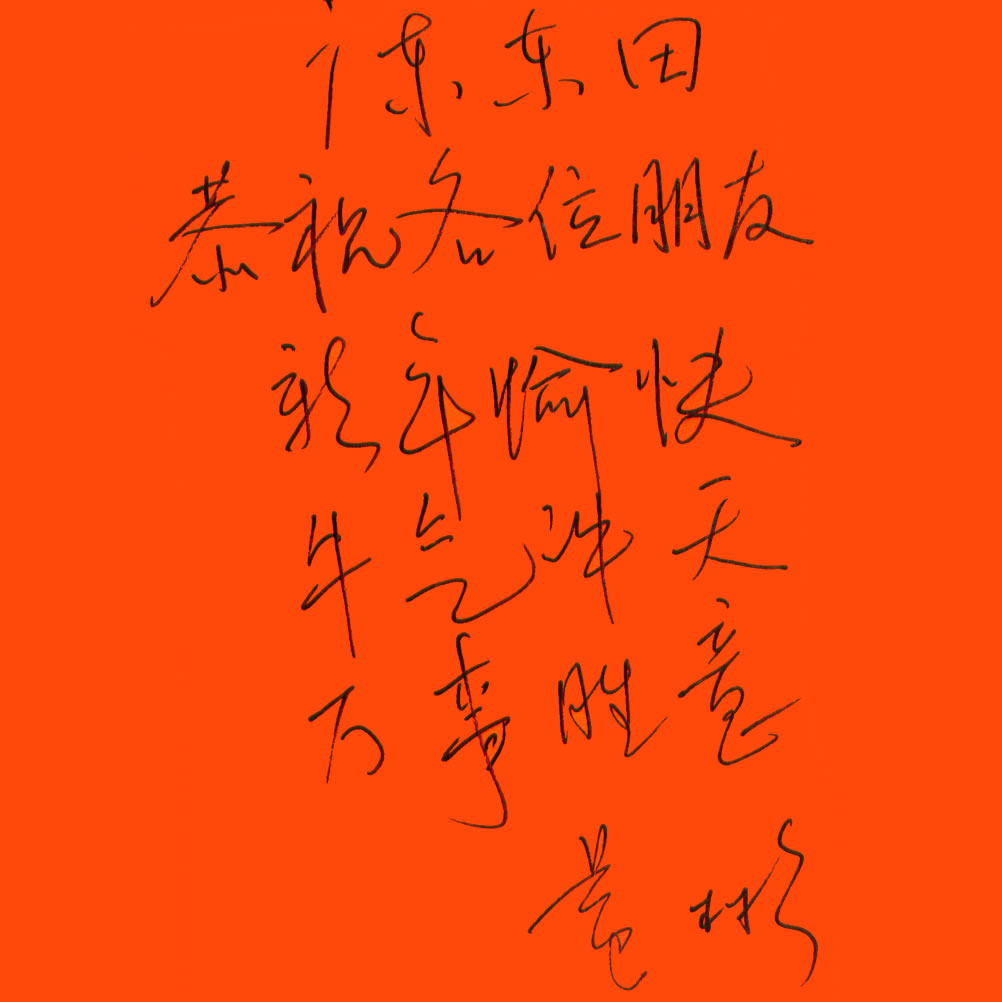 东田
恭祝各位朋友
新年愉快
牛气冲天
万事胜意
彬